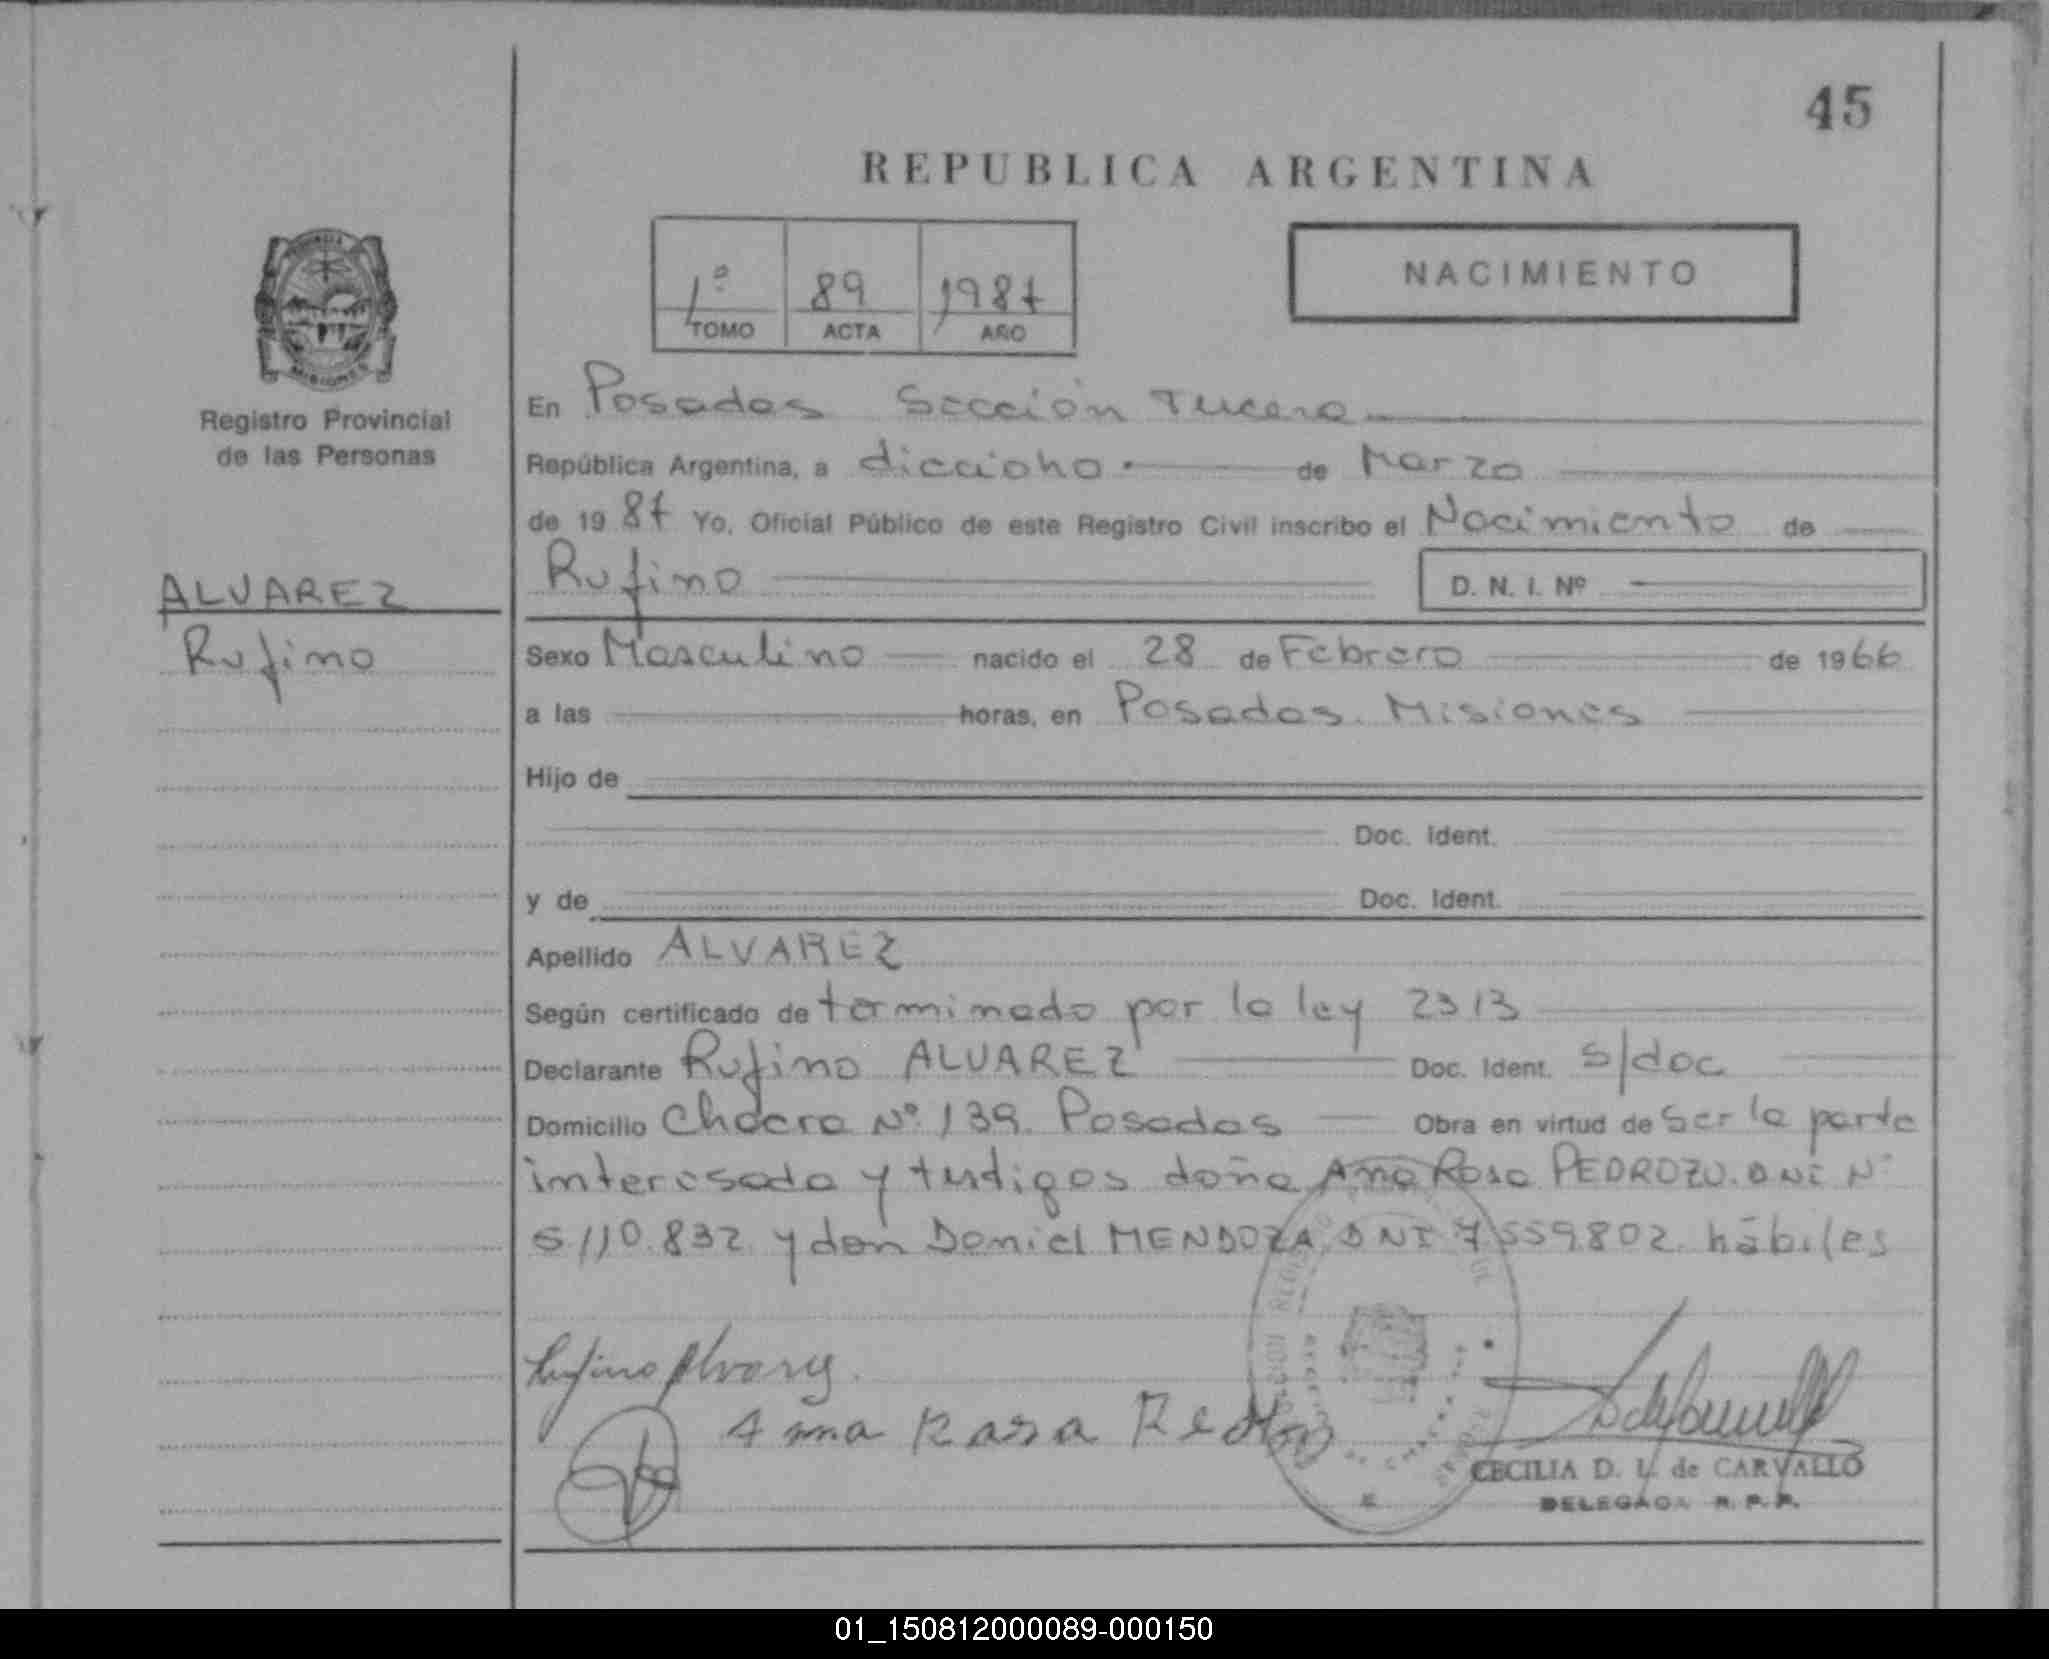 45
REPUBLICA ARGENTINA
NACIMIENTO
1º 89 1987
TOMO ACTA AÑO
MISIONES
Registro Provincial
de las Personas
ALVAREZ
Rufino
En Posadas Sección Tercera
República Argentina, a dieciocho de Marzo
de 1987 Yo, Oficial Público de este Registro Civil inscribo el Nacimiento de
Rufino D. N. I. Nº
Sexo Masculino nacido el 28 de Febrero de 1966
a las horas, en Posadas. Misiones
Hijo de
Doc. Ident.
y de Doc. Ident.
Apellido ALVAREZ
Según certificado de terminado por la ley 2313
Declarante Rufino ALVAREZ Doc. Ident. s/doc
Domicilio Chacra Nº 139. Posadas Obra en virtud de Ser la parte
interesada y testigos doña Ana Rosa PEDROZO. DNI Nº
5.110.832 y don Daniel MENDOZA, DNI 7.559.802. hábiles
Rufino Alvarez.
Ana Rosa
CECILIA D. L. de CARVALLO
DELEGADA R. P. P.
01_150812000089-000150